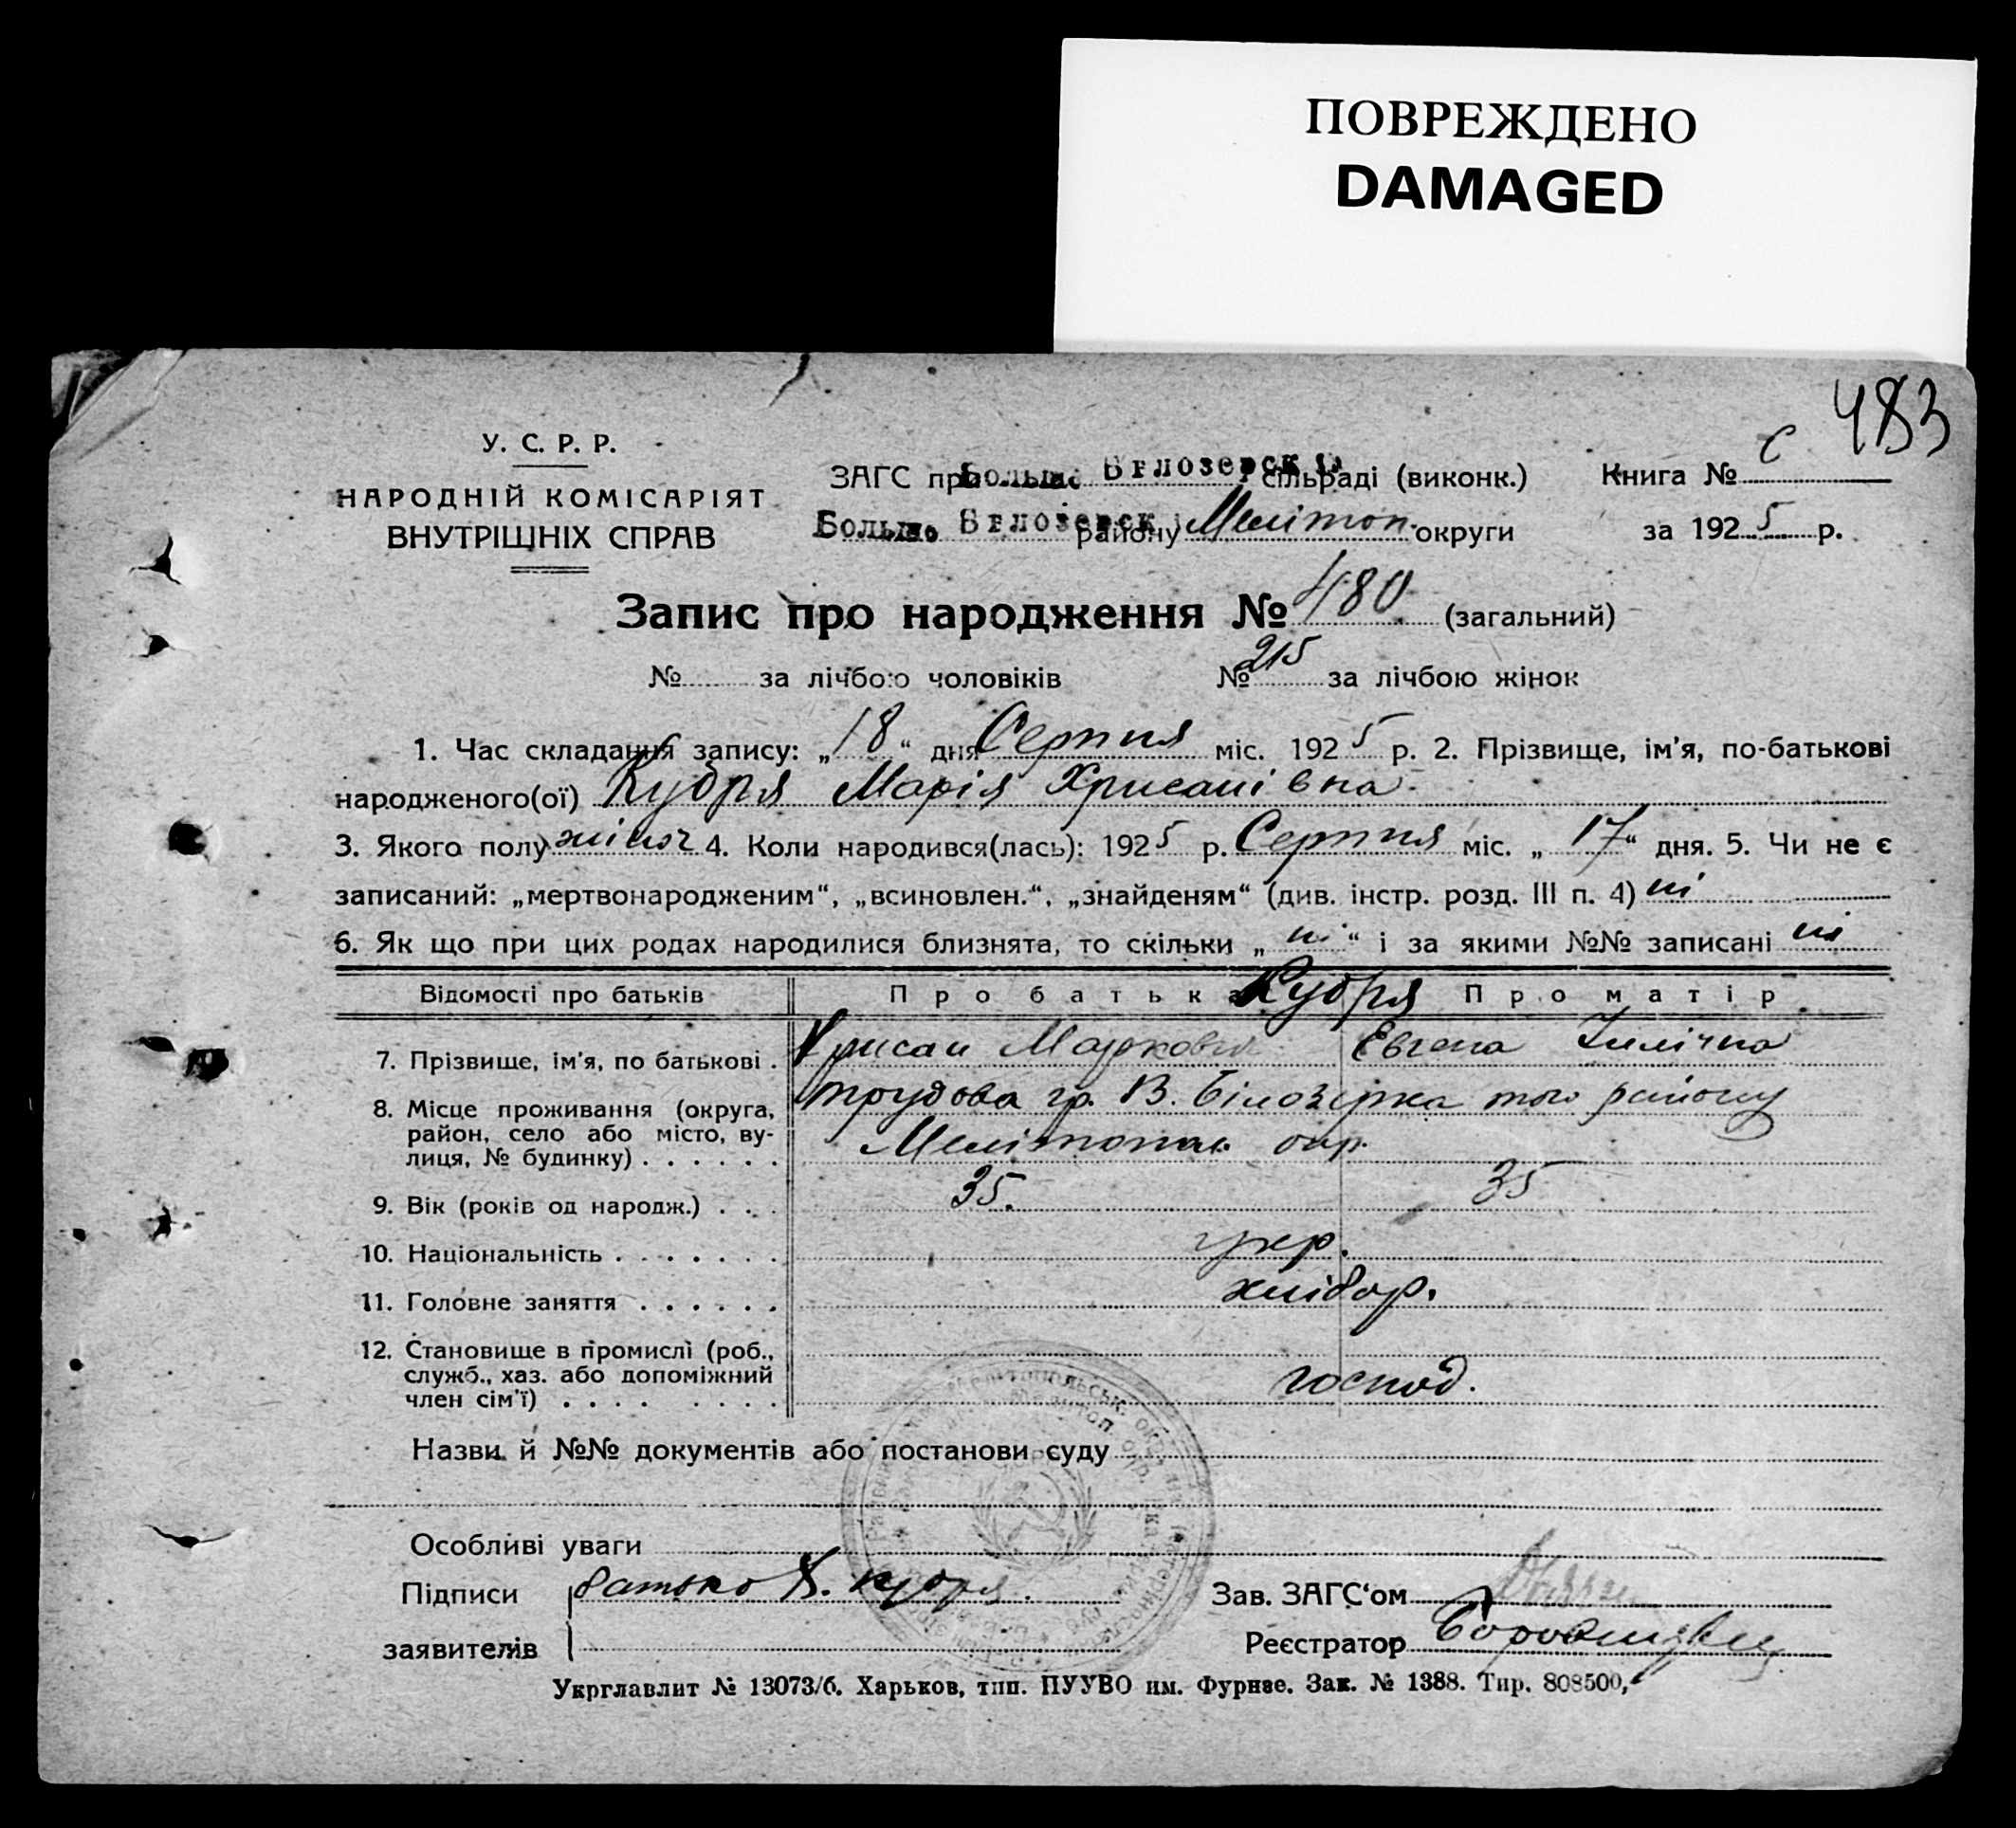 ПОВРЕЖДЕНО
DAMAGED
483
У. С. Р. Р.
НАРОДНІЙ КОМІСАРІЯТ
ВНУТРІШНІХ СПРАВ
ЗАГС при Больше Бѣлозерск сільраді (виконк.) Книга № С
Больше Бѣлозерск району Мелітоп. округи за 1925 р.
Запис про народження № 480 (загальний)
№ за лічбою чоловіків № 215 за лічбою жінок
1. Час складання запису: „18“ дня Серпня міс. 1925 р. 2. Прізвище, ім'я, по-батькові
народженого(ої) Кудря Марія Хрисанівна
3. Якого полу жіноч 4. Коли народився(лась): 1925 р. Серпня міс. „17“ дня. 5. Чи не є
записаний: „мертвонародженим“, „всиновлен.“, „знайденям“ (див. інстр. розд. III п. 4) ні
6. Як що при цих родах народилися близнята, то скільки „ні“ і за якими №№ записані ні
Відомості про батьків Про батька Кудря Про матір
7. Прізвище, ім'я, по батькові . Хрисан Маркович Евгена Іллічна
8. Місце проживання (округа, трудова гр. В. Білозірка того району
район, село або місто, ву- Мелітопол. окр.
лиця, № будинку) . . . . . .
9. Вік (років од народж.) . . . 35. 35
10. Національність . . . . . . . укр.
11. Головне заняття . . . . . . хлібор.
12. Становище в промислі (роб.,
служб., хаз. або допоміжний господ.
член сім'ї) . . . . . . . .
Назви й №№ документів або постанови суду
Особливі уваги
Підписи батько Х. Кудря. Зав. ЗАГС'ом
заявителів Реєстратор
Укрглавлит № 13073/б. Харьков, тип. ПУУВО им. Фрунзе. Зак. № 1388. Тир. 808500,